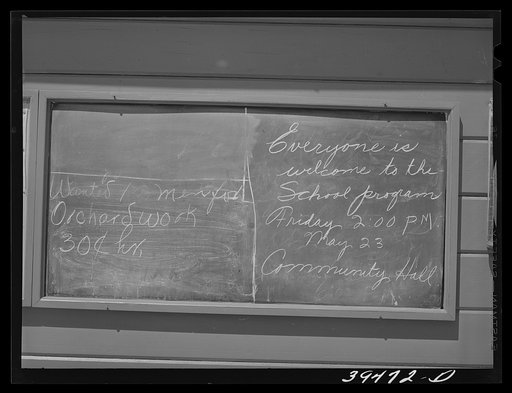 Wanted / men for
Orchard work
30¢ hr,
Everyone is
welcome to the
School program
Friday 2:00 P.M.
May 23
Community Hall
39472-D